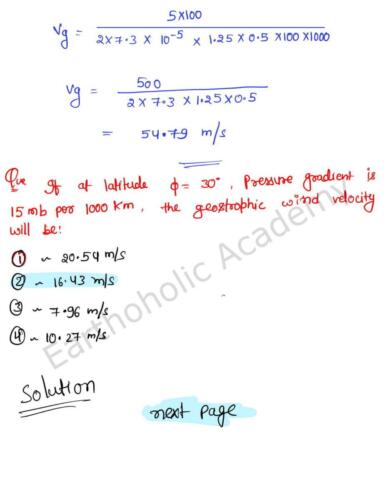 Vg = 5×100
2×7.3 × 10^-5 × 1.25 × 0.5 ×100×1000
Vg = 500
2 × 7.3 × 1.25×0.5
= 54.79 m/s
Que If at latitude ϕ = 30°, Pressure gradient is
15 mb per 1000 Km, the geostrophic wind velocity
will be:
① ~ 20.54 m/s
② ~ 16.43 m/s
③ ~ 7.96 m/s
④ ~ 10.27 m/s
Solution
next page
Earthoholic Academy